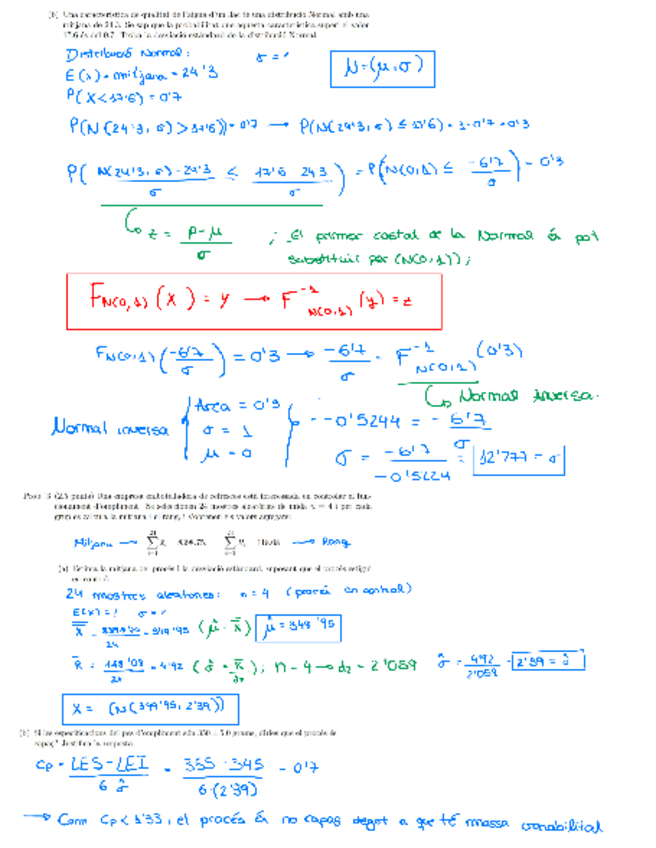 (b) Una característica de qualitat de l'aigua d'un llac té una distribució Normal amb una
mitjana de 24.3. Se sap que la probabilitat que aquesta característica superi el valor
17.6 és del 0.7. Troba la desviació estàndard de la distribució Normal.
Distribució Normal: σ = ?
N = (μ, σ)
E(x) = mitjana = 24'3
P(X < 17'6) = 0'7
P(N(24'3, σ) > 17'6)) = 0'7 → P(N(24'3, σ) ≤ 17'6) = 1 - 0'7 = 0'3
P( N(24'3, σ) - 24'3 / σ ≤ 17'6 - 24'3 / σ ) = P(N(0,1) ≤ -6'7 / σ) = 0'3
z = P - μ / σ ; El primer costat de la Normal és pot
substituir per (N(0,1));
F N(0,1) (X) = y → F⁻¹ N(0,1) (y) = z
F N(0,1) (-6'7 / σ) = 0'3 → -6'7 / σ = F⁻¹ N(0,1) (0'3)
Normal inversa.
Normal inversa { Area = 0'3 σ = 1 μ = 0
-0'5244 = -6'7 / σ
σ = -6'7 / -0'5224 = 12'777 = σ
(2.5 punts) Una empresa embotelladora de refrescos està interessada en controlar el fun-
cionament d'ompliment. Se seleccionen 24 mostres aleatòries de mida n = 4 i per cada
grup es calcula la mitjana i el rang, i s'obtenen els valors agregats:
Mitjana → → Rang
(a) Estima la mitjana del procés i la desviació estàndard, suposant que el procés estigui
en control.
24 mostres aleatories: n = 4 (procés en control)
E(X) = ? σ = ?
= 349'95 (μ̂ = X̿) μ̂ = 349'95
R̄ = 118'08 / 24 = 4'92 (σ̂ = R̄ / d₂); n = 4 → d₂ = 2'059 σ̂ = 4'92 / 2'059 = 2'39 = σ̂
X = (N(349'95, 2'39))
(b) Si les especificacions del pes d'ompliment són 350 ± 5.0 grams, diries que el procés és
capaç? Justifica la resposta.
Cp = LES - LEI / 6 σ̂ = 355 - 345 / 6·(2'39) = 0'7
→ Com Cp < 1'33, el procés és no capaç degut a que té massa variabilitat